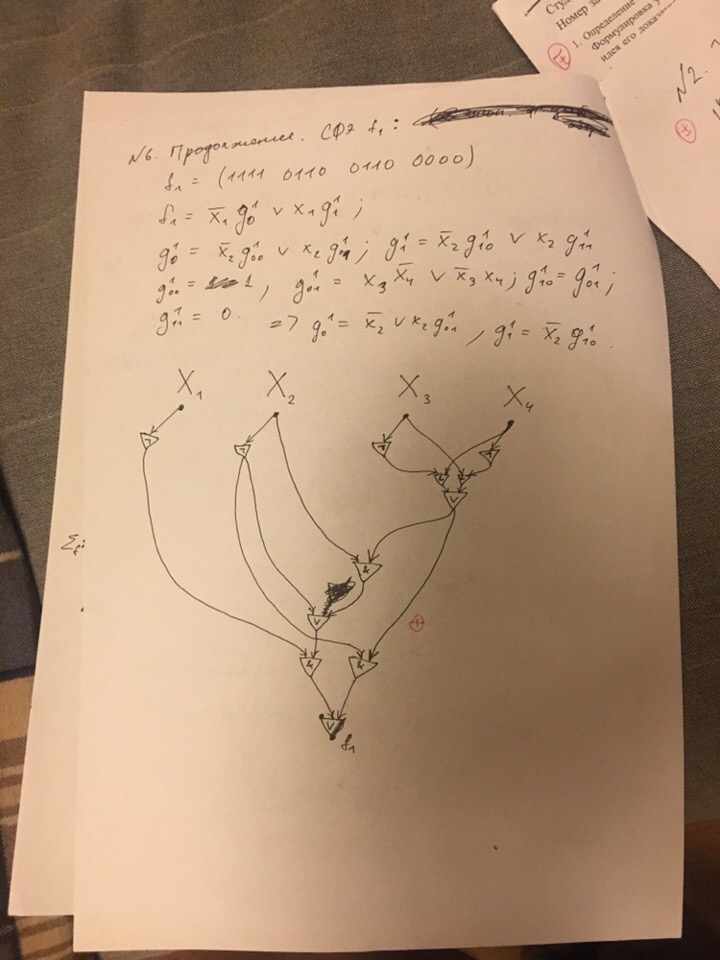 Номер за
1. Определение
Формулировка у
идея его дока
N2.
N6. Продолжение. СФЭ f₁:
f₁ = (1111 0110 0110 0000)
f₁ = x̄₁ g₀¹ ∨ x₁ g₁¹ ;
g₀¹ = x̄₂ g₀₀¹ ∨ x₂ g₀₁¹ ; g₁¹ = x̄₂ g₁₀¹ ∨ x₂ g₁₁¹
g₀₀¹ = 1 , g₀₁¹ = x₃ x̄₄ ∨ x̄₃ x₄ ; g₁₀¹ = g₀₁¹ ;
g₁₁¹ = 0. => g₀¹ = x̄₂ ∨ x₂ g₀₁¹ , g₁¹ = x̄₂ g₁₀¹ .
X₁ X₂ X₃ X₄
¬ ¬ ¬ ¬
& &
∨
&
∨
& &
∨
f₁